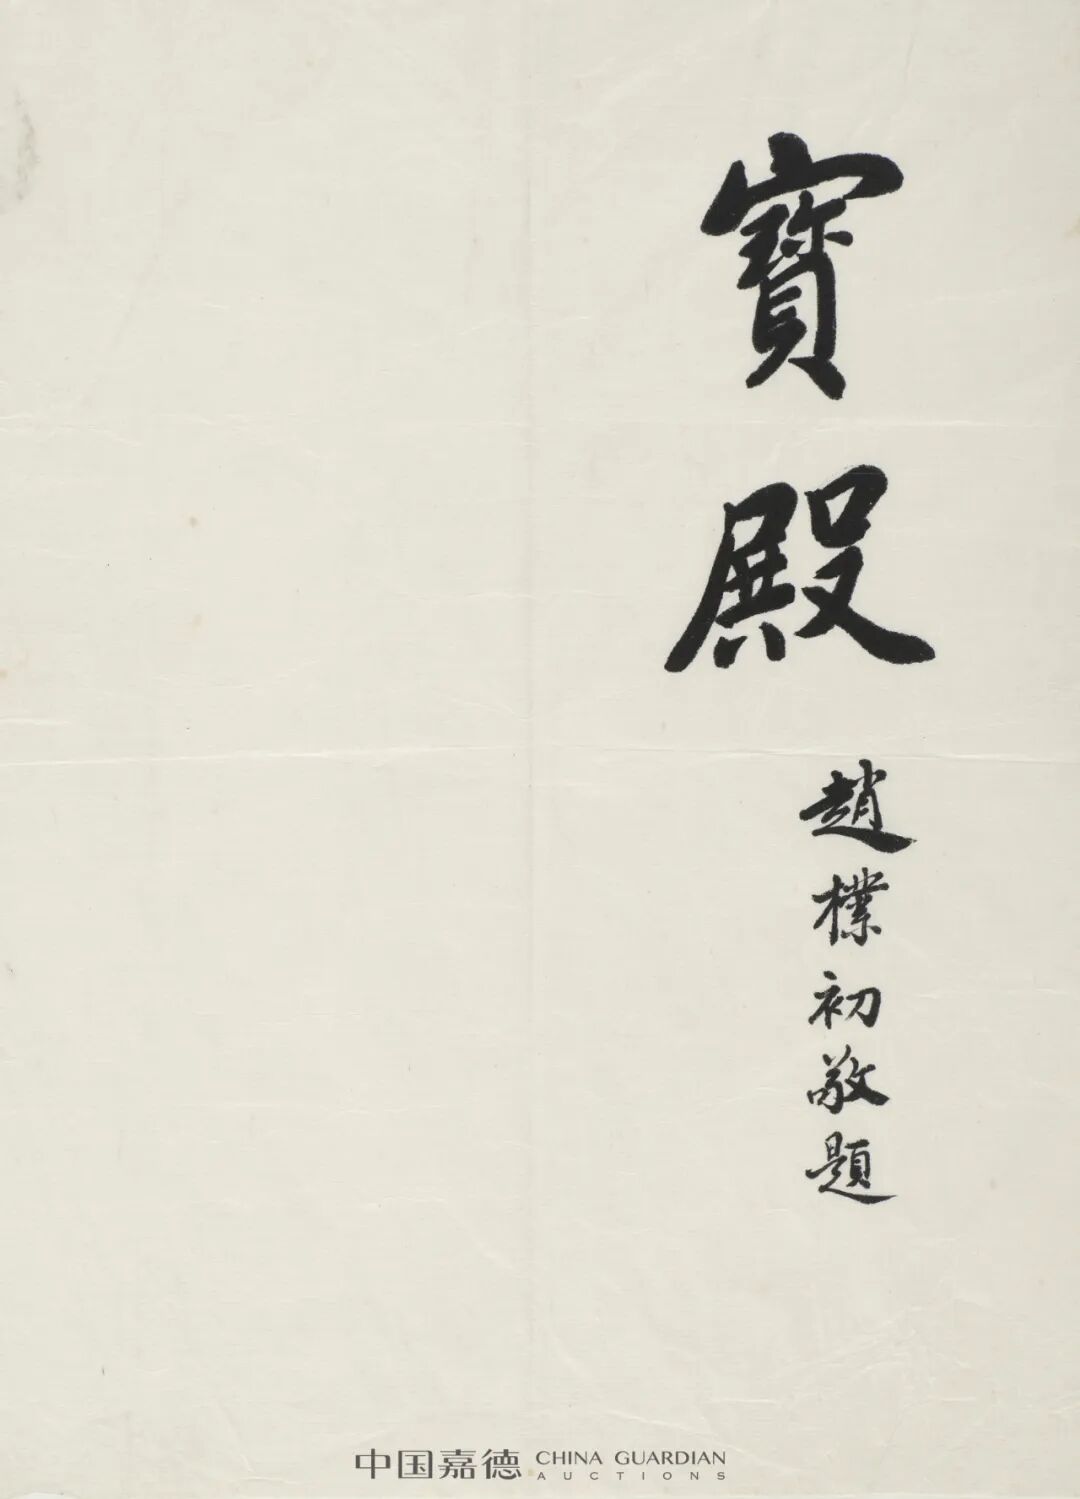 寶殿
趙樸初敬題
中国嘉德 CHINA GUARDIAN
AUCTIONS